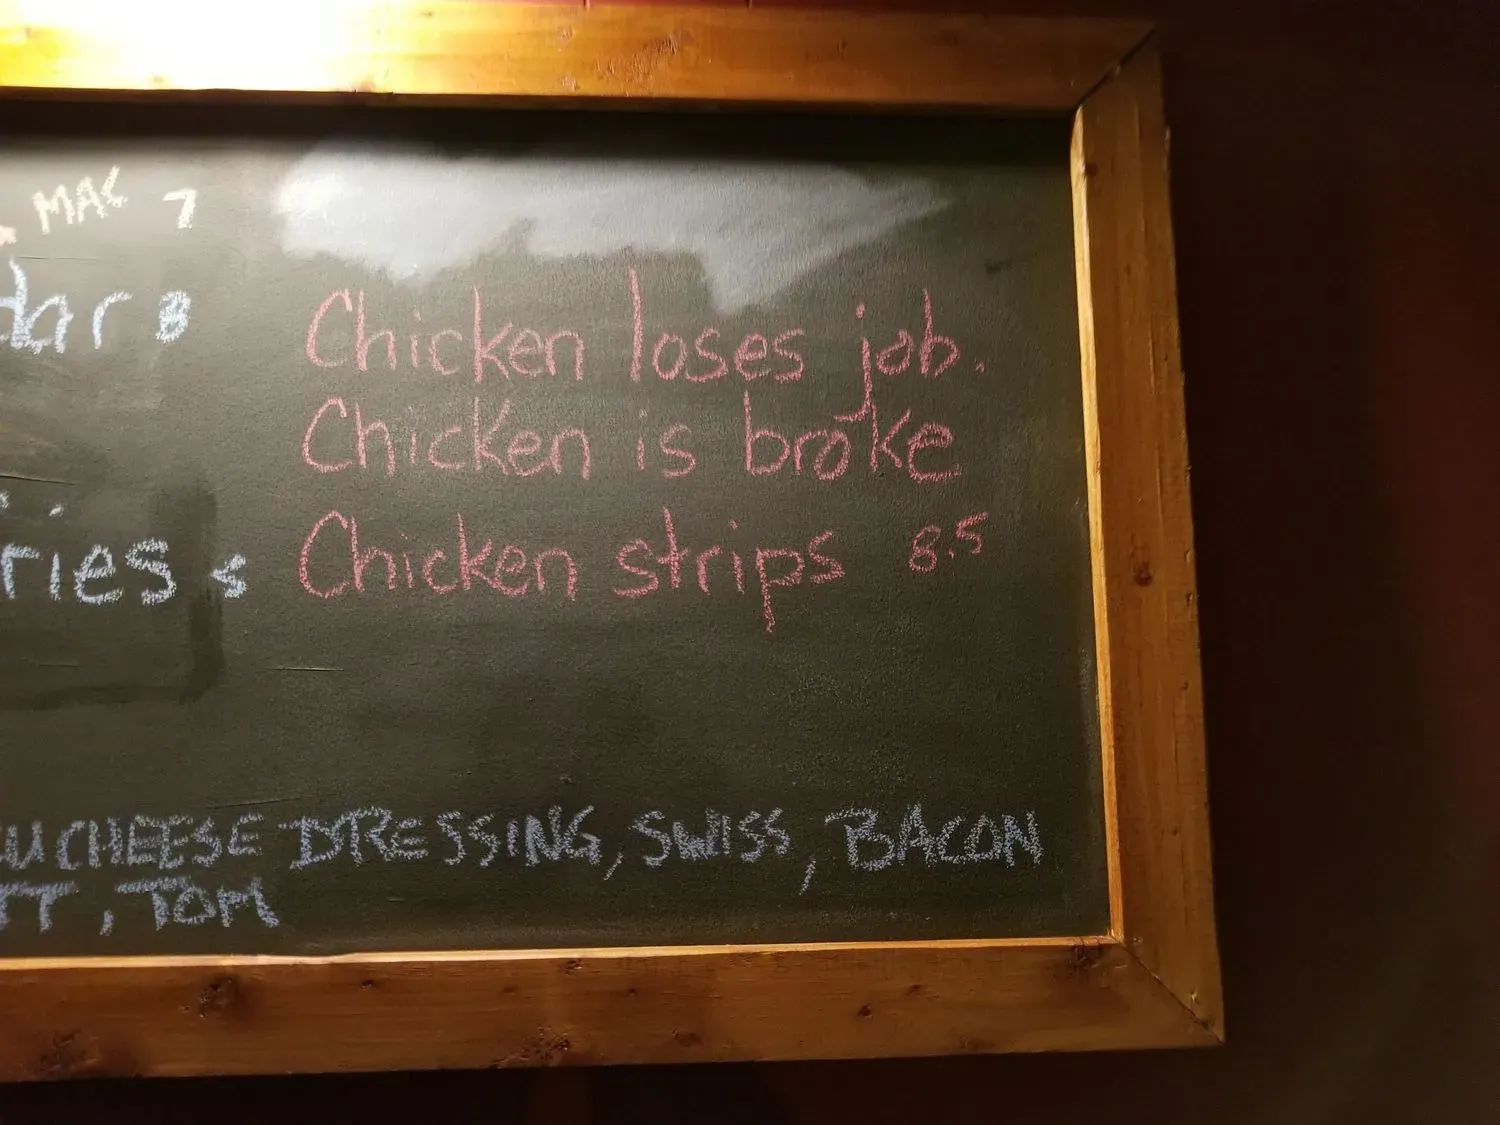 MAC 7
dar 8
Chicken loses job.
Chicken is broke
ries s
Chicken strips 8.5
CHEESE DRESSING, SWISS, BACON
TT, TOM